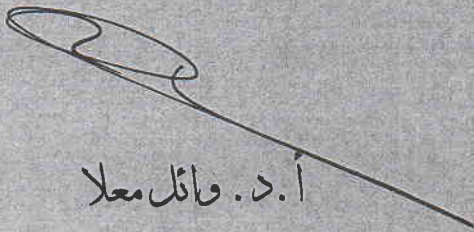 أ. د. وائل معلا